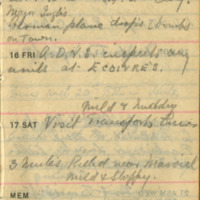 Major Inglis.
German plane drops 2 bombs
on Town.
16 FRI A.D.V.S. inspects any
units at ECOIVRES.
Mild & Muddy
17 SAT Visit transports lines
3 Mules, Rested near Maroeuil
Mild & Sloppy.
MEM